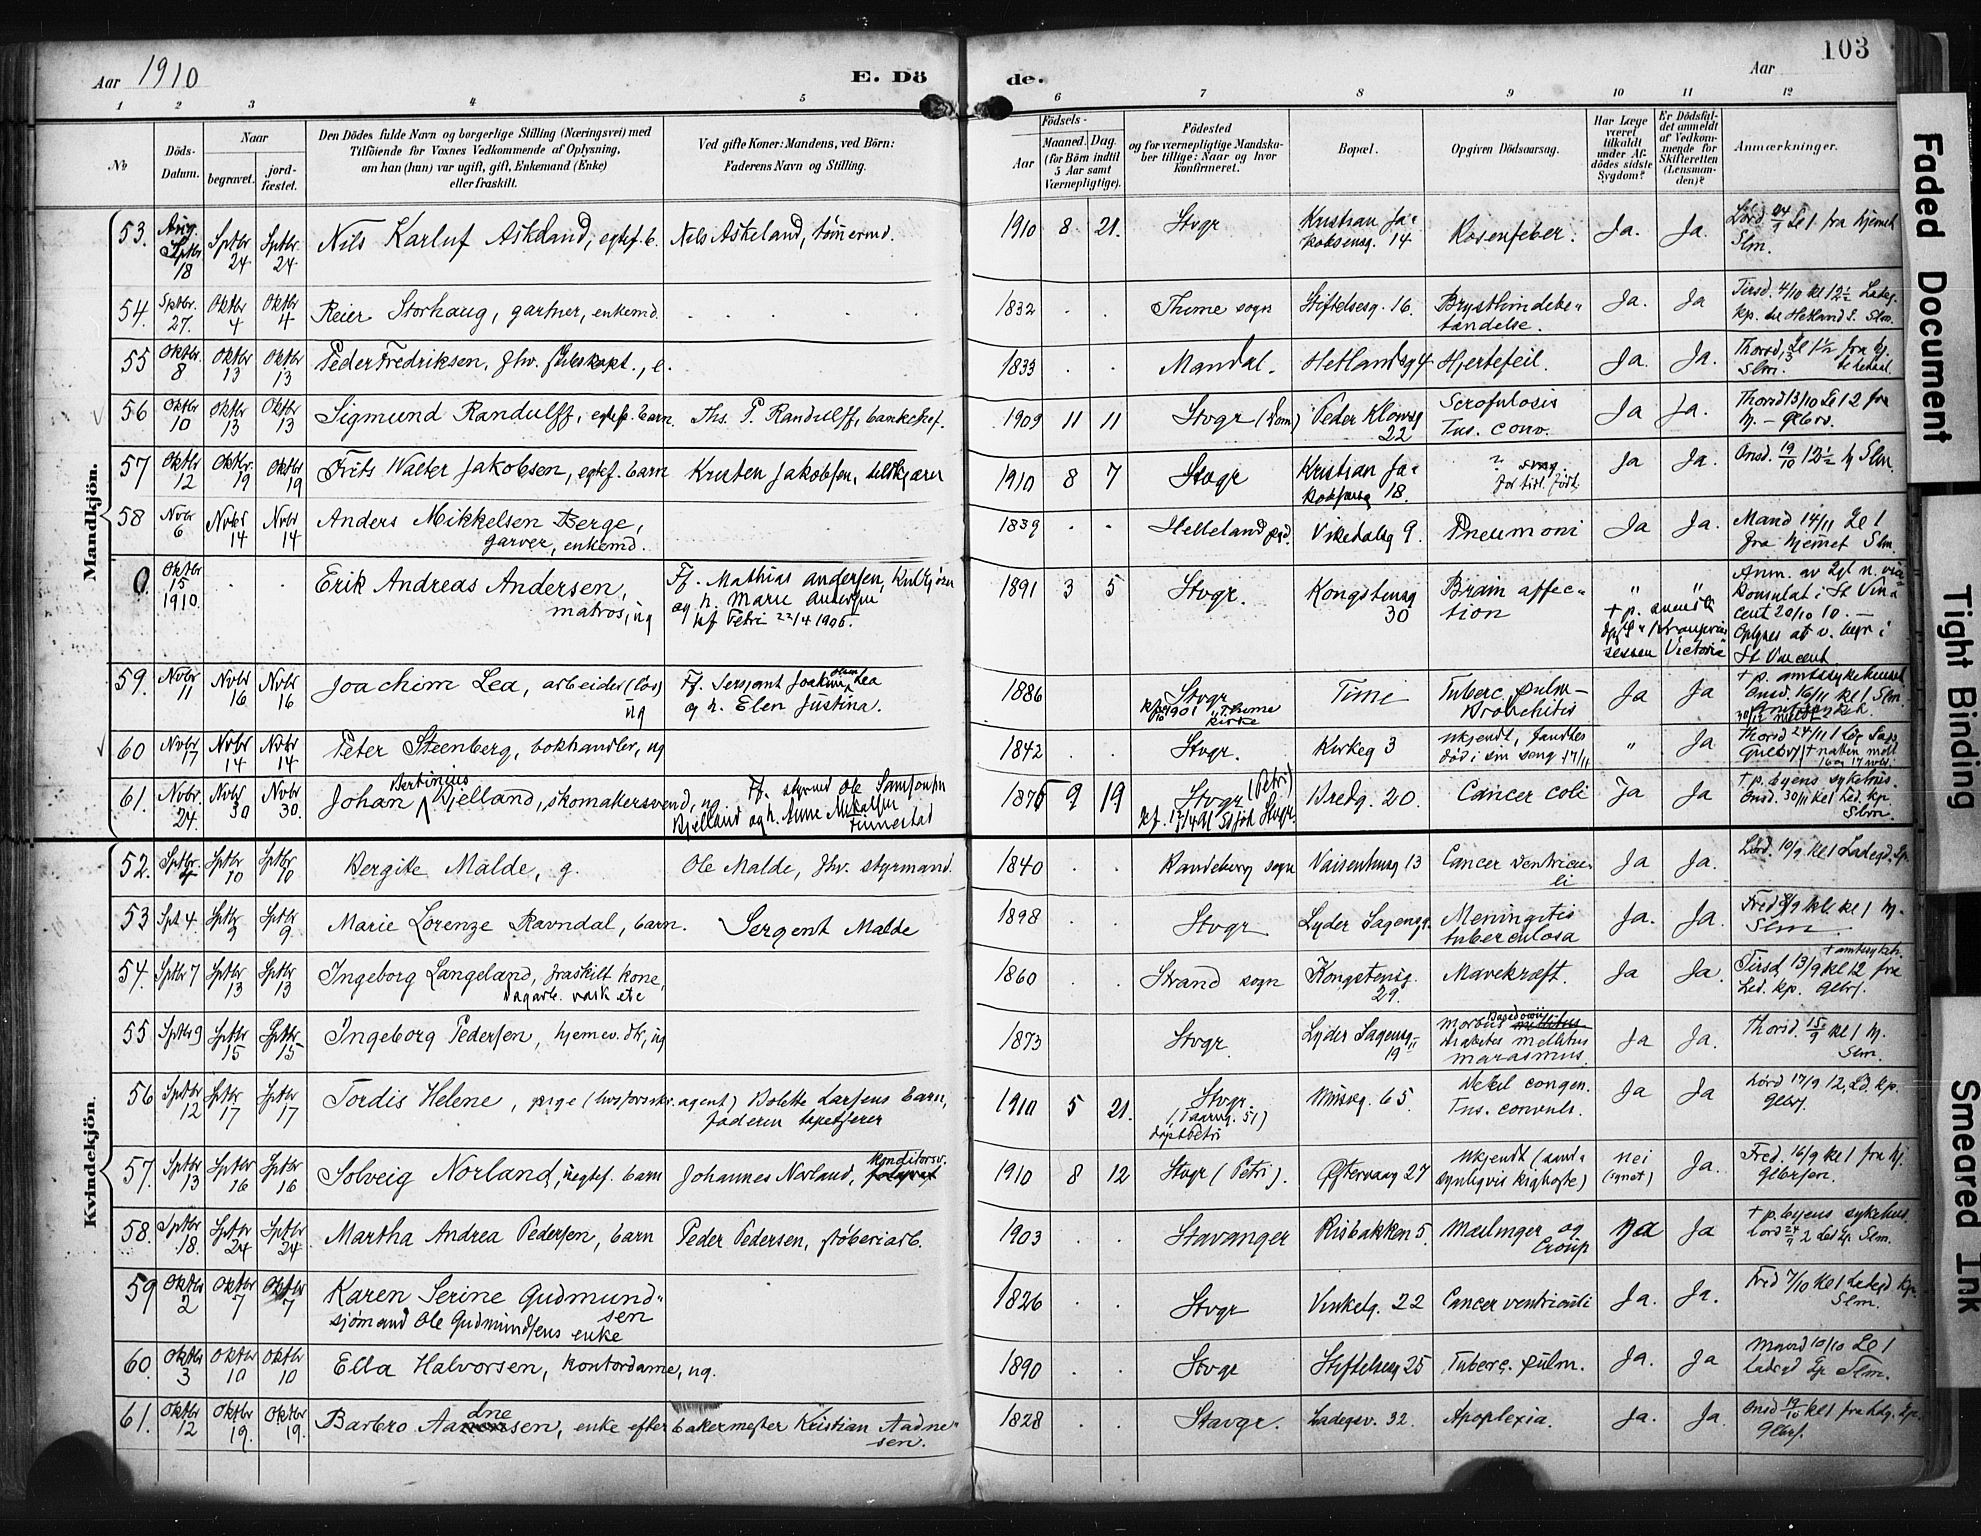 Aar 1910
E. Dö
de.
Aar
103
1 2 3 4 5 6 7 8 9 10 11 12
No
Döds-Datum.
Naar
begravet.
jord-fæstet.
Den Dödes fulde Navn og borgerlige Stilling (Næringsvei) med
Tilföiende for Voxnes Vedkommende af Oplysning,
om han (hun) var ugift, gift, Enkemand (Enke)
eller fraskilt.
Ved gifte Koner: Mandens, ved Börn:
Faderens Navn og Stilling.
Födsels-
Aar
Maaned.
Dag.
(for Börn indtil
5 Aar samt
Værnepligtige).
Födested
og for værnepligtige Mandska-
ber tillige: Naar og hvor
konfirmeret.
Bopæl.
Opgiven Dödsaarsag.
Har Læge
været
tilkaldt
under Af-
dödes sidste
Sygdom?
Er Dödsfal-
det anmeldt
af Vedkom-
mende for
Skifteretten
(Lensman-
den)?
Anmærkninger.
Mandkjön.
53. Sptbr 18 Sptbr 24 Sptbr 24 Nils Karluf Askeland, egtef. b. Nils Askeland, tömermd. 1910 8 21. Stvgr Kristian Ja-kobseng. 14 Rosenfeber. Ja. Ja. Lörd. 24/9 kl 1 fra hjemet Slm.
54. Sptbr. 27. Oktbr 4 Oktbr 4 Reier Storhaug, gartner, enkemd. 1832 Thime sogn Stiftelsesg. 16. Brysthindebe-tændelse. Ja. Ja Tirsd. 4/10 kl 12½ Ladeg. kp. Slm.
55 Oktbr. 8 Oktbr 13 Oktbr 13 Peder Fredriksen, fhv. e. 1833 Mandal. Hetlandsg 4 Hjertefeil. Ja. Ja. Thorsd. 13 kl 1½ fra hj. Slm.
56 Oktbr 10 Oktbr 13 Oktbr 13 Sigmund Randulff, egtef. barn. Ths. P. Randulff, bankchef. 1909 11 11 Stvgr (Dom) Peder Klowsg 22 Scrofulosis Tus. conv. Ja Ja. Thorsd 13/10 kl 12 fra hj.
57 Oktbr 12 Oktbr. 19 Oktbr 19 Frits Walter Jakobsen, egtef. barn Kristen Jakobsen, 1910 8 7 Stvgr Kristian Ja-kobsensg 18. ? svag. for tidl. født. Ja Ja. Onsd. 19/10 12½ hj Slm.
58 Novbr 6 Novbr 14 Novbr 14 Anders Mikkelsen Berge, garver, enkemd. 1839 Helleland pgd. Vikedalsg 9. Pneumoni Ja Ja. Mand 14/11 kl 1 fra hjemmet Slm.
0. Oktbr 15 1910. Erik Andreas Andersen, matros, ug Ff. Mathias Andersen, og h. Marie Andersen, kf Petri 22/4 1906. 1891 3 5 Stvgr. Kongstensg 30 Brain affec-tion " " Victoria Anm. av Konsulat i St Vin-cent 20/10 10. — Oplyses at v. begr i St Vincent.
59. Novbr 11 Novbr 16 Novbr 16 Joachim Lea, arbeider (lös) ug Ff. Sersjant Joakim Lea og h. Elen Justina. 1886 Stvgr. 1901 Thime kirke Time Tuberc. pulm- Bronchitis Ja Ja + p. amtssykehuset Onsd. 16/11 kl 1 Slm.
60 Novbr. 17 Novbr 14 Novbr 14 Peter Steenberg, bokhandler, ug 1842 Stvgr. Kirkeg 3 Ukjendt, fandtes död i sin seng 17/11 " Ja Thorsd 24/11 + natten mell 16 og 17 novbr.
61. Novbr. 24. Novbr 30 Novbr 30. Johan Bertinius Bjelland, skomakersvend, ug. Ff. styrmd Ole Samsonsen Bjelland og h. Anne Tinnestad 1876 9 19 Stvgr (Petri) Bredg. 20. Cancer coli Ja Ja + p. byens sykehus. Onsd. 30/11 kl 1 Led. kp. Slm.
Kvindekjön.
52. Sptbr. 4 Sptbr 10 Sptbr 10 Bergite Malde, g. Ole Malde, fhv. styrmand. 1840 Randeberg sogn Vaisenhusg 13 Cancer ventricu-li Ja Ja. Lörd. 10/9 kl 1 Ladegd. kp.
53 Spt 4 Sptbr 9 Sptbr 9 Marie Lorenze Ravndal, barn. Sergent Malde 1898 Stvgr Lyder Sagensg. Meningitis tuberculosa Ja. Ja. Fred 9/9 kl 1 hj. Slm
54. Sptbr 7 Sptbr 13 Sptbr 13 Ingeborg Langeland, fraskilt kone, Dagarb. vask etc 1860 Strand sogn Kongstensg. 29. Mavekræft. Ja Ja. + amtssykeh. Tirsd 13/9 kl 12 fra Led. kp.
55 Sptbr 9 Sptbr 15 Sptbr 15 Ingeborg Pedersen, hjemev. dtr, ug 1873 Stvgr. Lyder Sagensg- 19 Morbus Basedowii Diabetes mellitus marasmus. Ja Ja. Thorsd. 15/9 kl 1 hj. Slm.
56 Sptbr 12 Sptbr 17 Sptbr 17 Tordis Helene, pige agent) Bolette Larsens barn, faderen tapetserer 1910 5 21. Stvgr. döpt Petri Musèg. 65. Debil congen. Tus. convuls. Ja Ja Lörd 17/9 12, Ld. kp.
57. Sptbr 13 Sptbr 16 Sptbr 16 Solveig Norland, uegtef. barn Johannes Norland, konditorsv. 1910 8 12 Stvgr (Petri). Östervaag 27 Ukjendt (sand-synligvis kighoste) nei Ja. Fred. 16/9 kl 1 fra hj.
58. Sptbr 18. Sptbr 24 Sptbr 24 Martha Andrea Pedersen, barn Peder Pedersen, støberiarb. 1903 Stavanger Risbakken 5. Mæslinger og Croup Ja Ja + p. byens sykehus. Lörd 24/9 2 Led kp Slm.
59 Oktbr 2 Oktbr 7 Oktbr 7 Karen Serine Gudmund-sen sjømand Ole Gudmundsens enke 1826 Stvgr Vinkelg. 22 Cancer ventriculi Ja. Ja. Fred 7/10 kl 1 Ladegd kp. Slm.
60. Oktbr 3 Oktbr 10 Oktbr 10 Ella Halvorsen, kontordame, ug. 1890 Stvgr Stiftelsesg 25 Tuberc. pulm. Ja. Ja Mand 10/10 kl 1 Ladegd kp Slm.
61. Oktbr 12 Oktbr 19. Oktbr 19. Barbro Aadnesen, enke efter bakermester Kristian Aadne-sen. 1828 Stavgr. Ladegsv. 32. Apoplexia. Ja. Ja. Onsd 19/10 kl 1 fra Ldg. kp.
Faded Document
Tight Binding
Smeared Ink